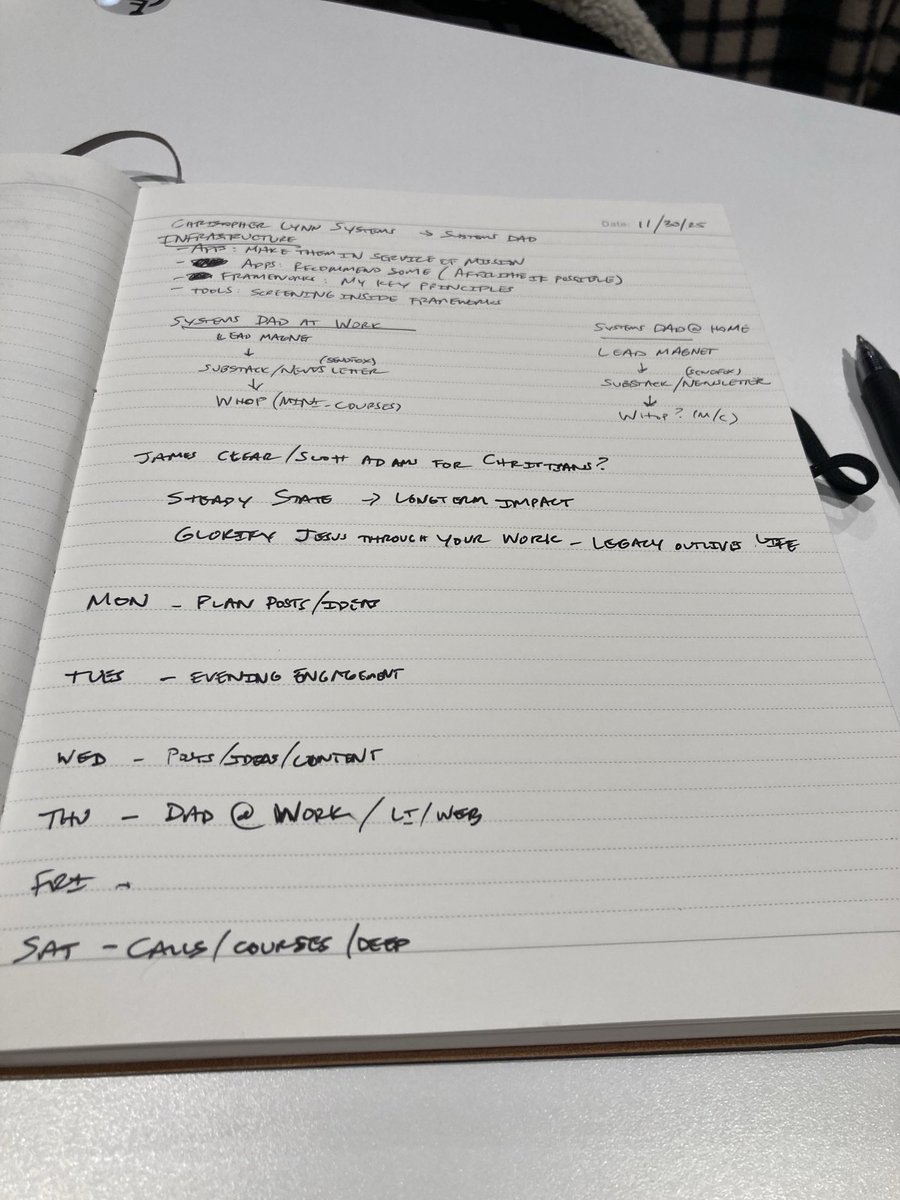 Date: 11/30/25
CHRISTOPHER LYNN SYSTEMS → SYSTEMS DAD
INFRASTRUCTURE
- APPS: MAKE THEM IN SERVICE OF MISSION
- APPS: RECOMMEND SOME (AFFILIATE IF POSSIBLE)
- FRAMEWORKS: MY KEY PRINCIPLES
- TOOLS: SCREENING INSIDE FRAMEWORKS
SYSTEMS DAD AT WORK
LEAD MAGNET
↓ (SENDFOX)
SUBSTACK/NEWSLETTER
↓
WHOP (MINI-COURSES)
SYSTEMS DAD @ HOME
LEAD MAGNET
↓ (SENDFOX)
SUBSTACK/NEWSLETTER
↓
WHOP? (M/C)
JAMES CLEAR/SCOTT ADAMS FOR CHRISTIANS?
STEADY STATE → LONGTERM IMPACT
GLORIFY JESUS THROUGH YOUR WORK - LEGACY OUTLIVES LIFE
MON - PLAN POSTS/IDEAS
TUES - EVENING ENGAGEMENT
WED - POSTS/IDEAS/CONTENT
THU - DAD @ WORK / LI/WEB
FRI -
SAT - CALLS/COURSES/DEEP